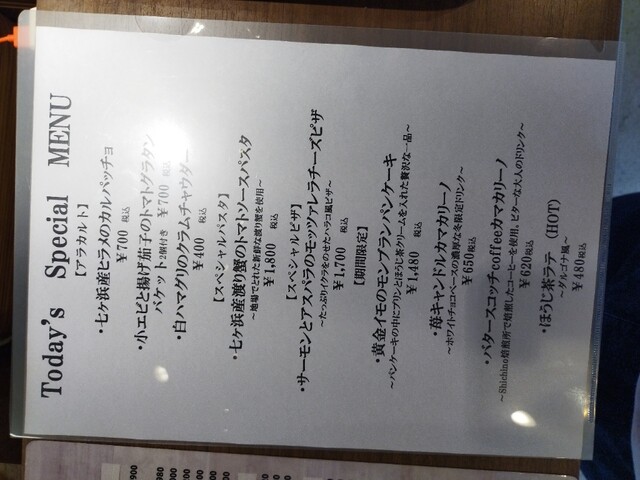 Today's Special MENU
【アラカルト】
・七ヶ浜産ヒラメのカルパッチョ
￥700 税込
・小エビと揚げ茄子のトマトグラタン
バケット2個付き ￥700 税込
・白ハマグリのクラムチャウダー
￥400 税込
【スペシャルパスタ】
・七ヶ浜産渡り蟹のトマトソースパスタ
～地場でとれた新鮮な渡り蟹を使用～
￥1,800 税込
【スペシャルピザ】
・サーモンとアスパラのモッツァレラチーズピザ
～たっぷりイクラをのせたハラコ風ピザ～
￥1,700 税込
【期間限定】
・黄金イモのモンブランパンケーキ
～パンケーキの中にプリンとほうじ茶クリームを入れた贅沢な一品～
￥1,480 税込
・苺キャンドルカマカリーノ
～ホワイトチョコベースの濃厚な冬限定ドリンク～
￥650税込
・バタースコッチcoffeeカマカリーノ
～Shichino焙煎所で焙煎したコーヒーを使用、ビターな大人のドリンク～
￥620税込
・ほうじ茶ラテ (HOT)
～ダルゴナ風～
￥480税込
900
980